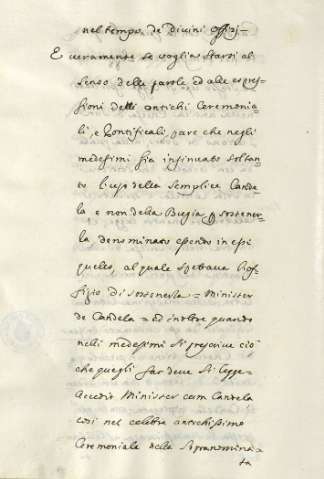 nel tempo de' divini Offizi –
E veramente se voglia starsi al
senso delle parole ed alle espres-
sioni delli antichi Ceremonia-
li, e Pontificali, pare che negli
medesimi sia insinuato soltan-
to l'uso della semplice Cande-
la e non della Bugia p sostener-
la denominato essendo in essi
quelos, al quale spettava l'of-
fizio di sostenerla = Minister
de Candela = ed inoltre quando
nelli medesimi si prescrive ciò
che quegli far deve si legge =
Accedit Minister cum Candela
così nel celebre antichissimo
Ceremoniale della sopranomina-
ta